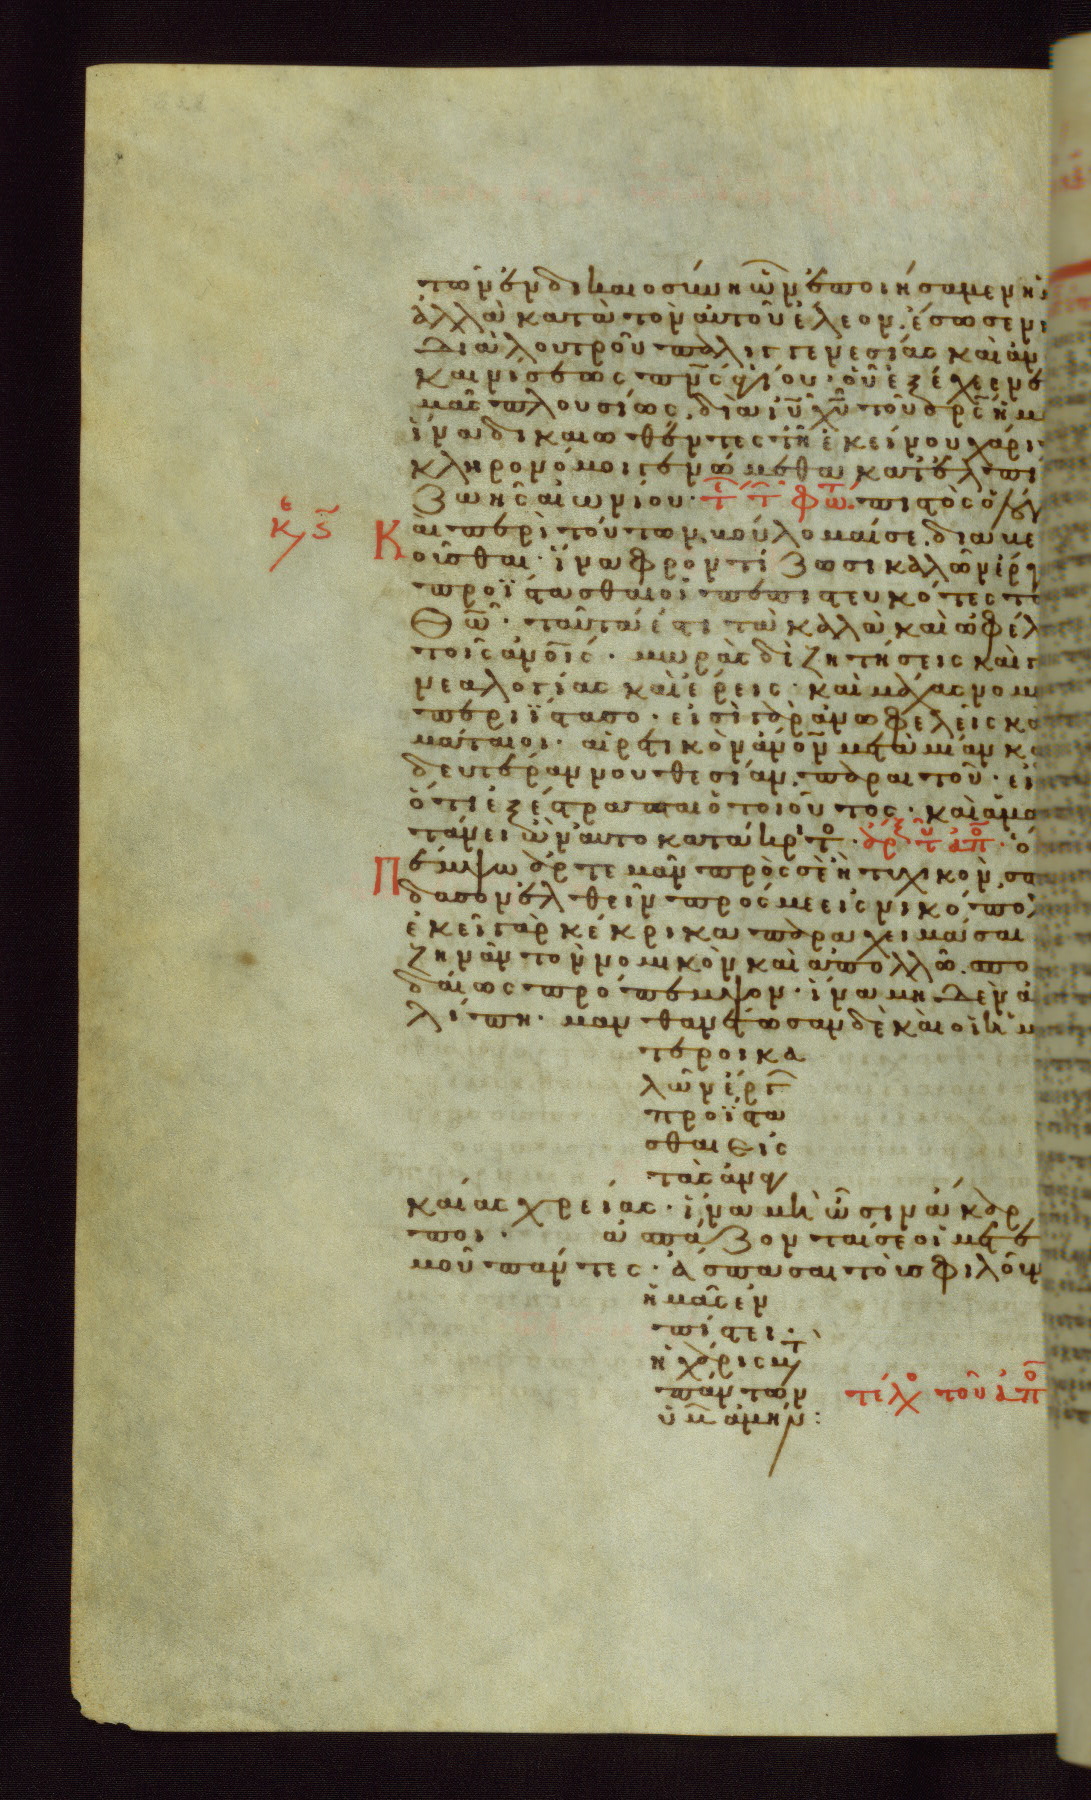 τῶν ἐν δικαιοσύνη ὧν ἐποιήσαμεν ἡ
ἀλλὰ κατὰ τὸν αὐτοῦ ἔλεον. ἔσωσεν
διὰ λουτροῦ παλιγγενεσίας καὶ ἀν
καινίσεως πν̅ς ἁγίου· οὗ ἐξέχεεν ἐ
μᾶς πλουσίως. διὰ ιυ̅ χυ̅ τοῦ σρ̅ς ἡμ
ἵνα δικαιωθέντες τῆ ἐκείνου χάρι
κληρονόμοι γενώμεθα κατ' ἐλπί
ζωῆς αἰωνίου· τε̅ τ̅ φω̅. πιστὸς ὁ λόγ
κε ϛ
Καὶ περὶ τούτων βούλομαί σε. διαβε
οῦσθαι· ἵνα φροντίζωσι καλῶν ἔργ
προΐστασθαι οἱ πεπιστευκότες τ
θω̅· ταῦτά ἐστι τὰ καλὰ καὶ ὠφέλ
τοῖς ἀνο̅ις· μωρὰς δὲ ζητήσεις καὶ γ
νεαλογίας καὶ ἔρεις· καὶ μάχας νομ
περιΐστασο· εἰσὶ γὰρ ἀνωφελεῖς κα
μάταιοι· αἱρετικὸν ἄνο̅ν μετὰ μίαν κα
δευτέραν νουθεσίαν. παραιτοῦ· εἰ
ὅτι ἐξέστραπται ὁ τοιοῦτος· καὶ ἁμα
τάνει ὢν αὐτοκατάκριτο· ἀρξ τοῦ ἀπο· ὅ
Πέμψω ἀρτεμᾶν πρὸς σὲ ἢ τυχικὸν. σπ
δασον ἐλθεῖν πρός με εἰς νικόπολ
ἐκεῖ γὰρ κέκρικα παραχειμάσαι
ζηνᾶν τὸν νομικὸν καὶ ἀπολλῶ. σπο
δαίως πρόπεμψον· ἵνα μηδὲν α
λίπη· μανθανέτωσαν δὲ καὶ οἱ ἡμ
τεροι κα
λῶν ἔργ
προΐστα
σθαι εἰς
τὰς ἀναγ
καίας χρείας· ἵνα μὴ ὦσιν ἄκαρ
ποι· ἀσπάζονταί σε οἱ μετ ἐ
μοῦ πάντες· ἄσπασαι τοὺς φιλοῦν
ἡμᾶς ἐν
πίστει·
ἡ χάρις μετ
πάντων
ὑμ ἀμήν:
τέλο τοῦ ἀπο